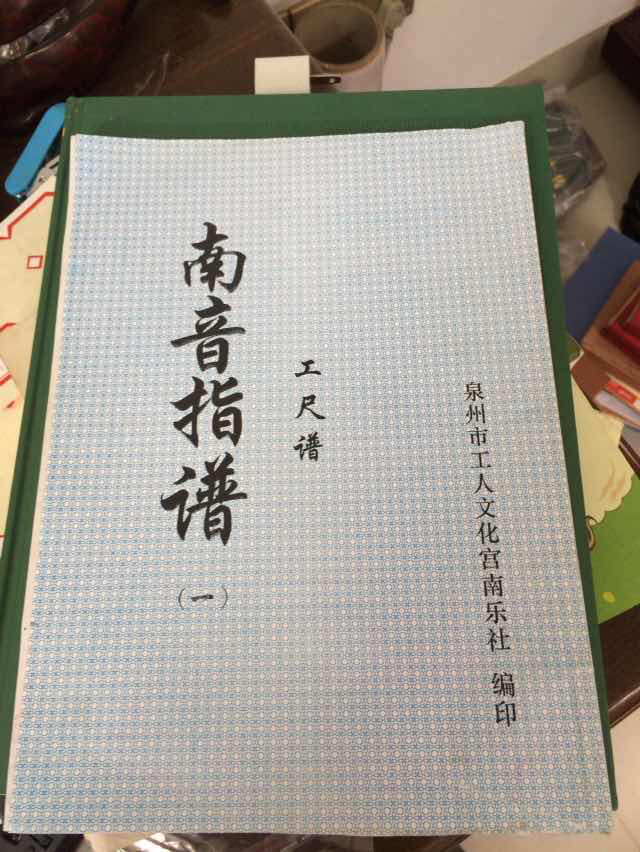 南音指谱
(一)
工尺谱
泉州市工人文化宫南乐社 编印